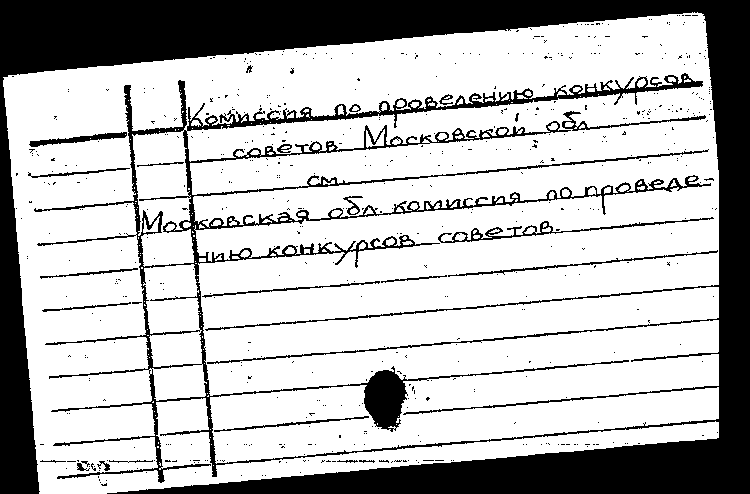 Комиссия по проведению конкурсов
советов Московской обл
см.
Московская обл. комиссия по проведе-
нию конкурсов советов.